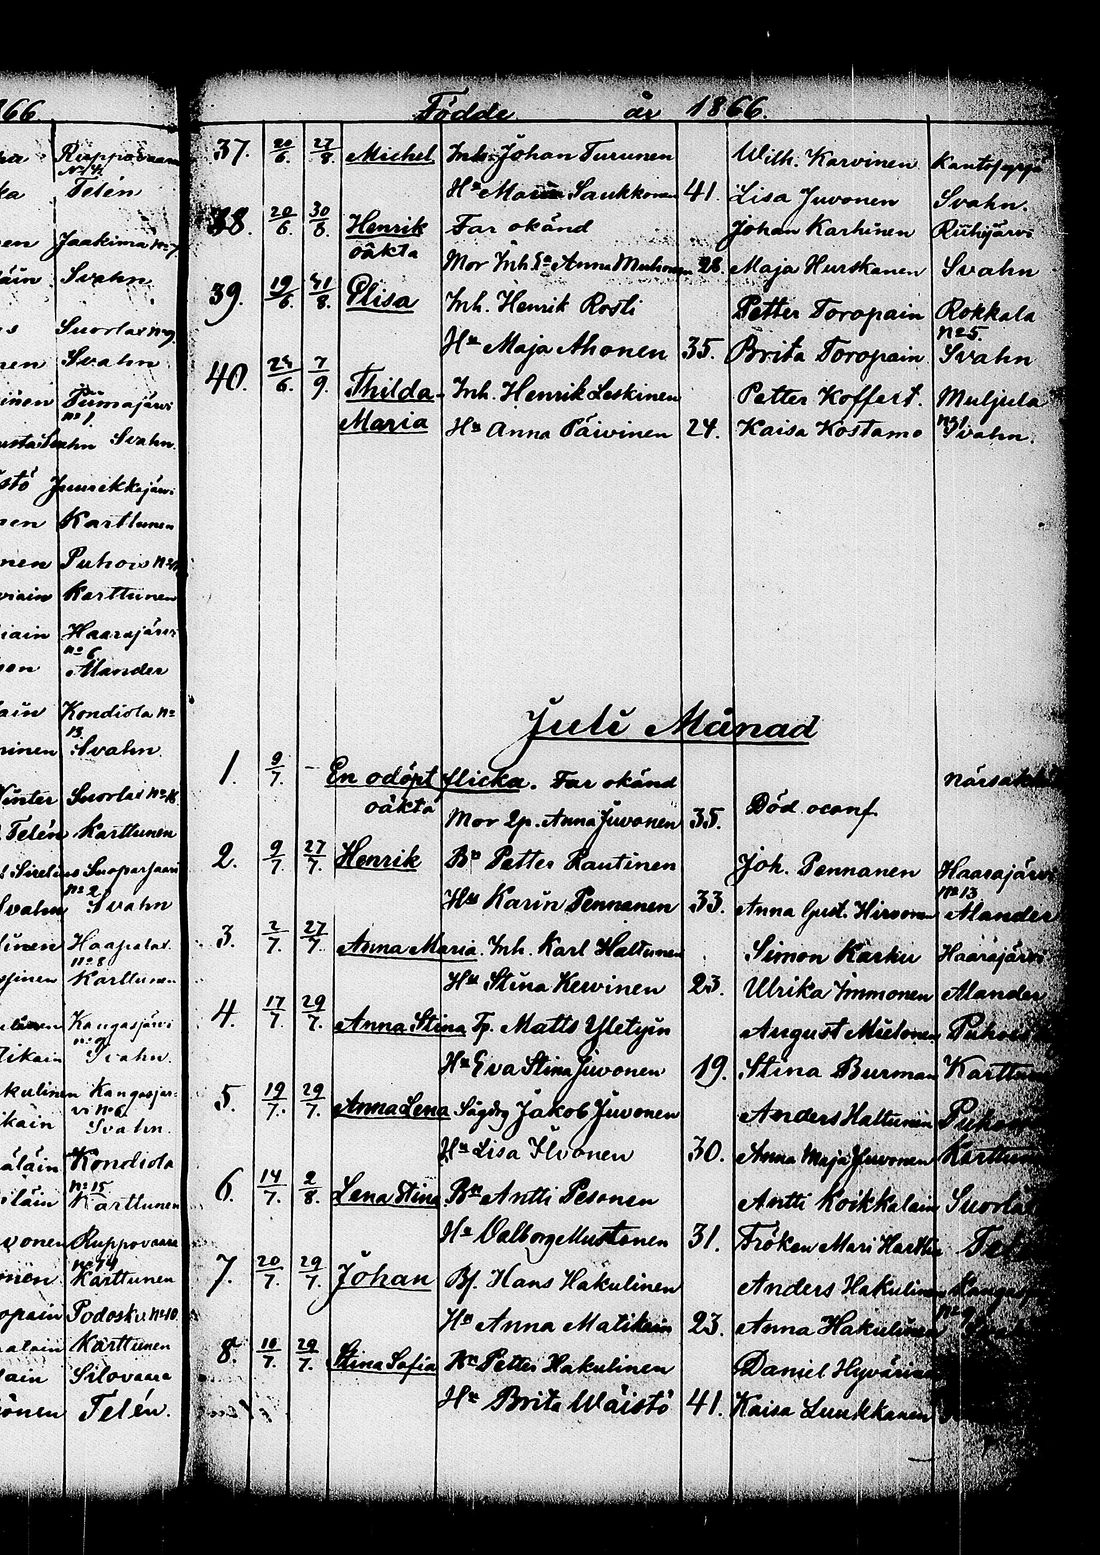 66
Födde år 1866.
Ruppovaara
No 14.
Telén
Jaakima No 7
Svahn
Suorlax No 9
Svahn
Tiimajärvi
No 1.
Svahn Svahn.
Juurikkajärvi
Karttunen
Puhois No
Karttunen
Haarajärvi
No 6
Alander
Kondiola No
13.
Svahn
Winter Suorlax No 16
Telén Karttunen
No 2
Svahn Svahn
Haapalax
No 8
Karttunen
Kangasjärvi
No 9
Svahn.
Kangasjär-
vi No 6
Svahn.
Kondiola
No 15
Karttunen
Ruppovaara
No 14
Karttunen
Podosku No 10.
Karttunen
Silovaara
Telén.
37. 20/6. 27/8 Michel Inh. Johan Turunen Wilh. Karvinen
Hu Maria Saukkonen 41. Lisa Juvonen Svahn.
38. 20/6. 30/6. Henrik Far okänd Johan Karhinen Riihijärvi
oäkta Mor Inh. Anna Muhonen 28. Maja Hurskanen Svahn
39. 19/6 /8. Elisa Inh. Henrik Rosti Petter Toropain Rokkala
No 5.
Hu Maja Ahonen 35. Brita Toropain Svahn
40. 24/6. 7/9. Thilda- Inh. Henrik Leskinen Petter Koffert. Muljula
No 1
Maria Hu Anna Päivinen 24. Kaisa Kostamo Svahn.
Juli Månad
1. 9/7. – En odöpt flicka. Far okänd
oäkta Mor Ip. Anna Juvonen 35. Död oconf.
2. 9/7. 27/7. Henrik Bn Petter Rautinen Joh. Pennanen Haarajärvi
No 13
Hu Karin Pennanen 33. Anna Gust. Hirvonen Alander
3. 2/7. 27/7. Anna Maria. Inh. Karl Haltunen Simon Karhu Haarajärvi
Hu Stina Kervinen 23. Ulrika Immonen Alander
4. 17/7. 29/7. Anna Stina Tp. Matts Yletyin August Mielonen Puhois
Hu Eva Stina Juvonen 19. Stina Burman Karttunen
5. 19/7. 29/7. Anna Lena Sågdrg Jakob Juvonen Anders Haltunen
Hu Lisa Ilvonen 30. Anna Maja Juvonen Karttunen
6. 14/7. 2/8. Lena Stina Bn Antti Pesonen Antti Koikkalain Suorlax
Hu Valborg Mustonen 31. Fröken Mari
7. 20/7. 29/7. Johan Bf. Hans Hakulinen Anders Hakulinen
Hu Anna Matikain 23. Anna Hakulinen
8. 10/7. 29/7. Stina Sofia Bn Petter Hakulinen Daniel Hyvärinen
Hu Brita Wäistö 41. Kaisa Luukkanen